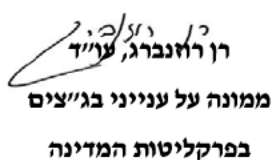 רן רוזנברג, עו"ד
ממונה על ענייני בג"צים
בפרקליטות המדינה